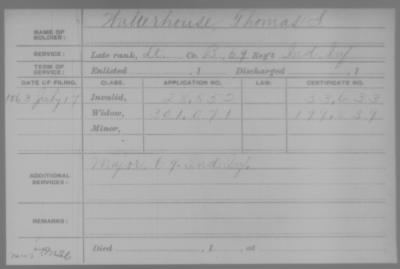 NAME OF SOLDIER: Walterhouse, Thomas S
SERVICE: Late rank, Lt. Co. B, 69 Reg't Ind. Inf
TERM OF SERVICE: Enlisted , 1 Discharged , 1
DATE OF FILING. CLASS. APPLICATION NO. LAW. CERTIFICATE NO.
1863 July 17 Invalid, 28,852 33,633
Widow, 301,071 199,239
Minor,
ADDITIONAL SERVICES: Major 69 Ind. Inf.
REMARKS:
Died , 1 , at